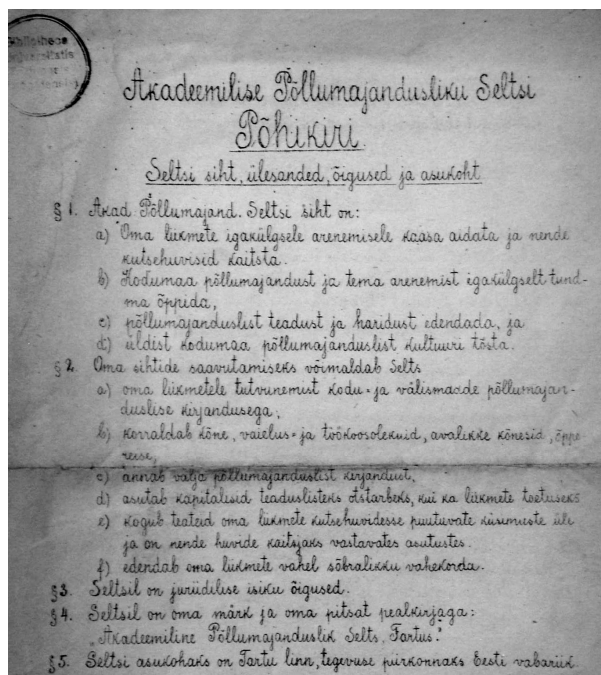 Bibliotheca
Universitatis
Akadeemilise Põllumajandusliku Seltsi
Põhikiri.
Seltsi siht, ülesanded, õigused ja asukoht
§ 1. Akad. Põllumajand. Seltsi siht on:
a) Oma liikmete igakülgsele arenemisele kaasa aidata ja nende
kutsehuvisid kaitsta.
b) Kodumaa põllumajandust ja tema arenemist igakülgselt tund-
ma õppida,
c) põllumajanduslist teadust ja haridust edendada, ja
d) üldist kodumaa põllumajanduslist kultuuri tõsta.
§ 2. Oma sihtide saavutamiseks võimaldab Selts
a) oma liikmetele tutvunemist kodu- ja välismaade põllumajan-
duslise kirjandusega,
b) korraldab kõne, vaielus- ja töökoosolekuid, avalikke kõnesid, õppe
reise,
c) annab välja põllumajanduslist kirjandust,
d) asutab kapitalisid teaduslisteks otstarbeks, kui ka liikmete toetuseks
e) kogub teateid oma liikmete kutsehuvidesse puutuvate küsimuste üle
ja on nende huvide kaitsjaks vastavates asutustes.
f) edendab oma liikmete vahel sõbralikku vahekorda.
§ 3. Seltsil on juriidilise isiku õigused.
§ 4. Seltsil on oma märk ja oma pitsat pealkirjaga:
„Akadeemiline Põllumajanduslik Selts, Tartus."
§ 5. Seltsi asukohaks on Tartu linn, tegevuse piirkonnaks Eesti vabariik.